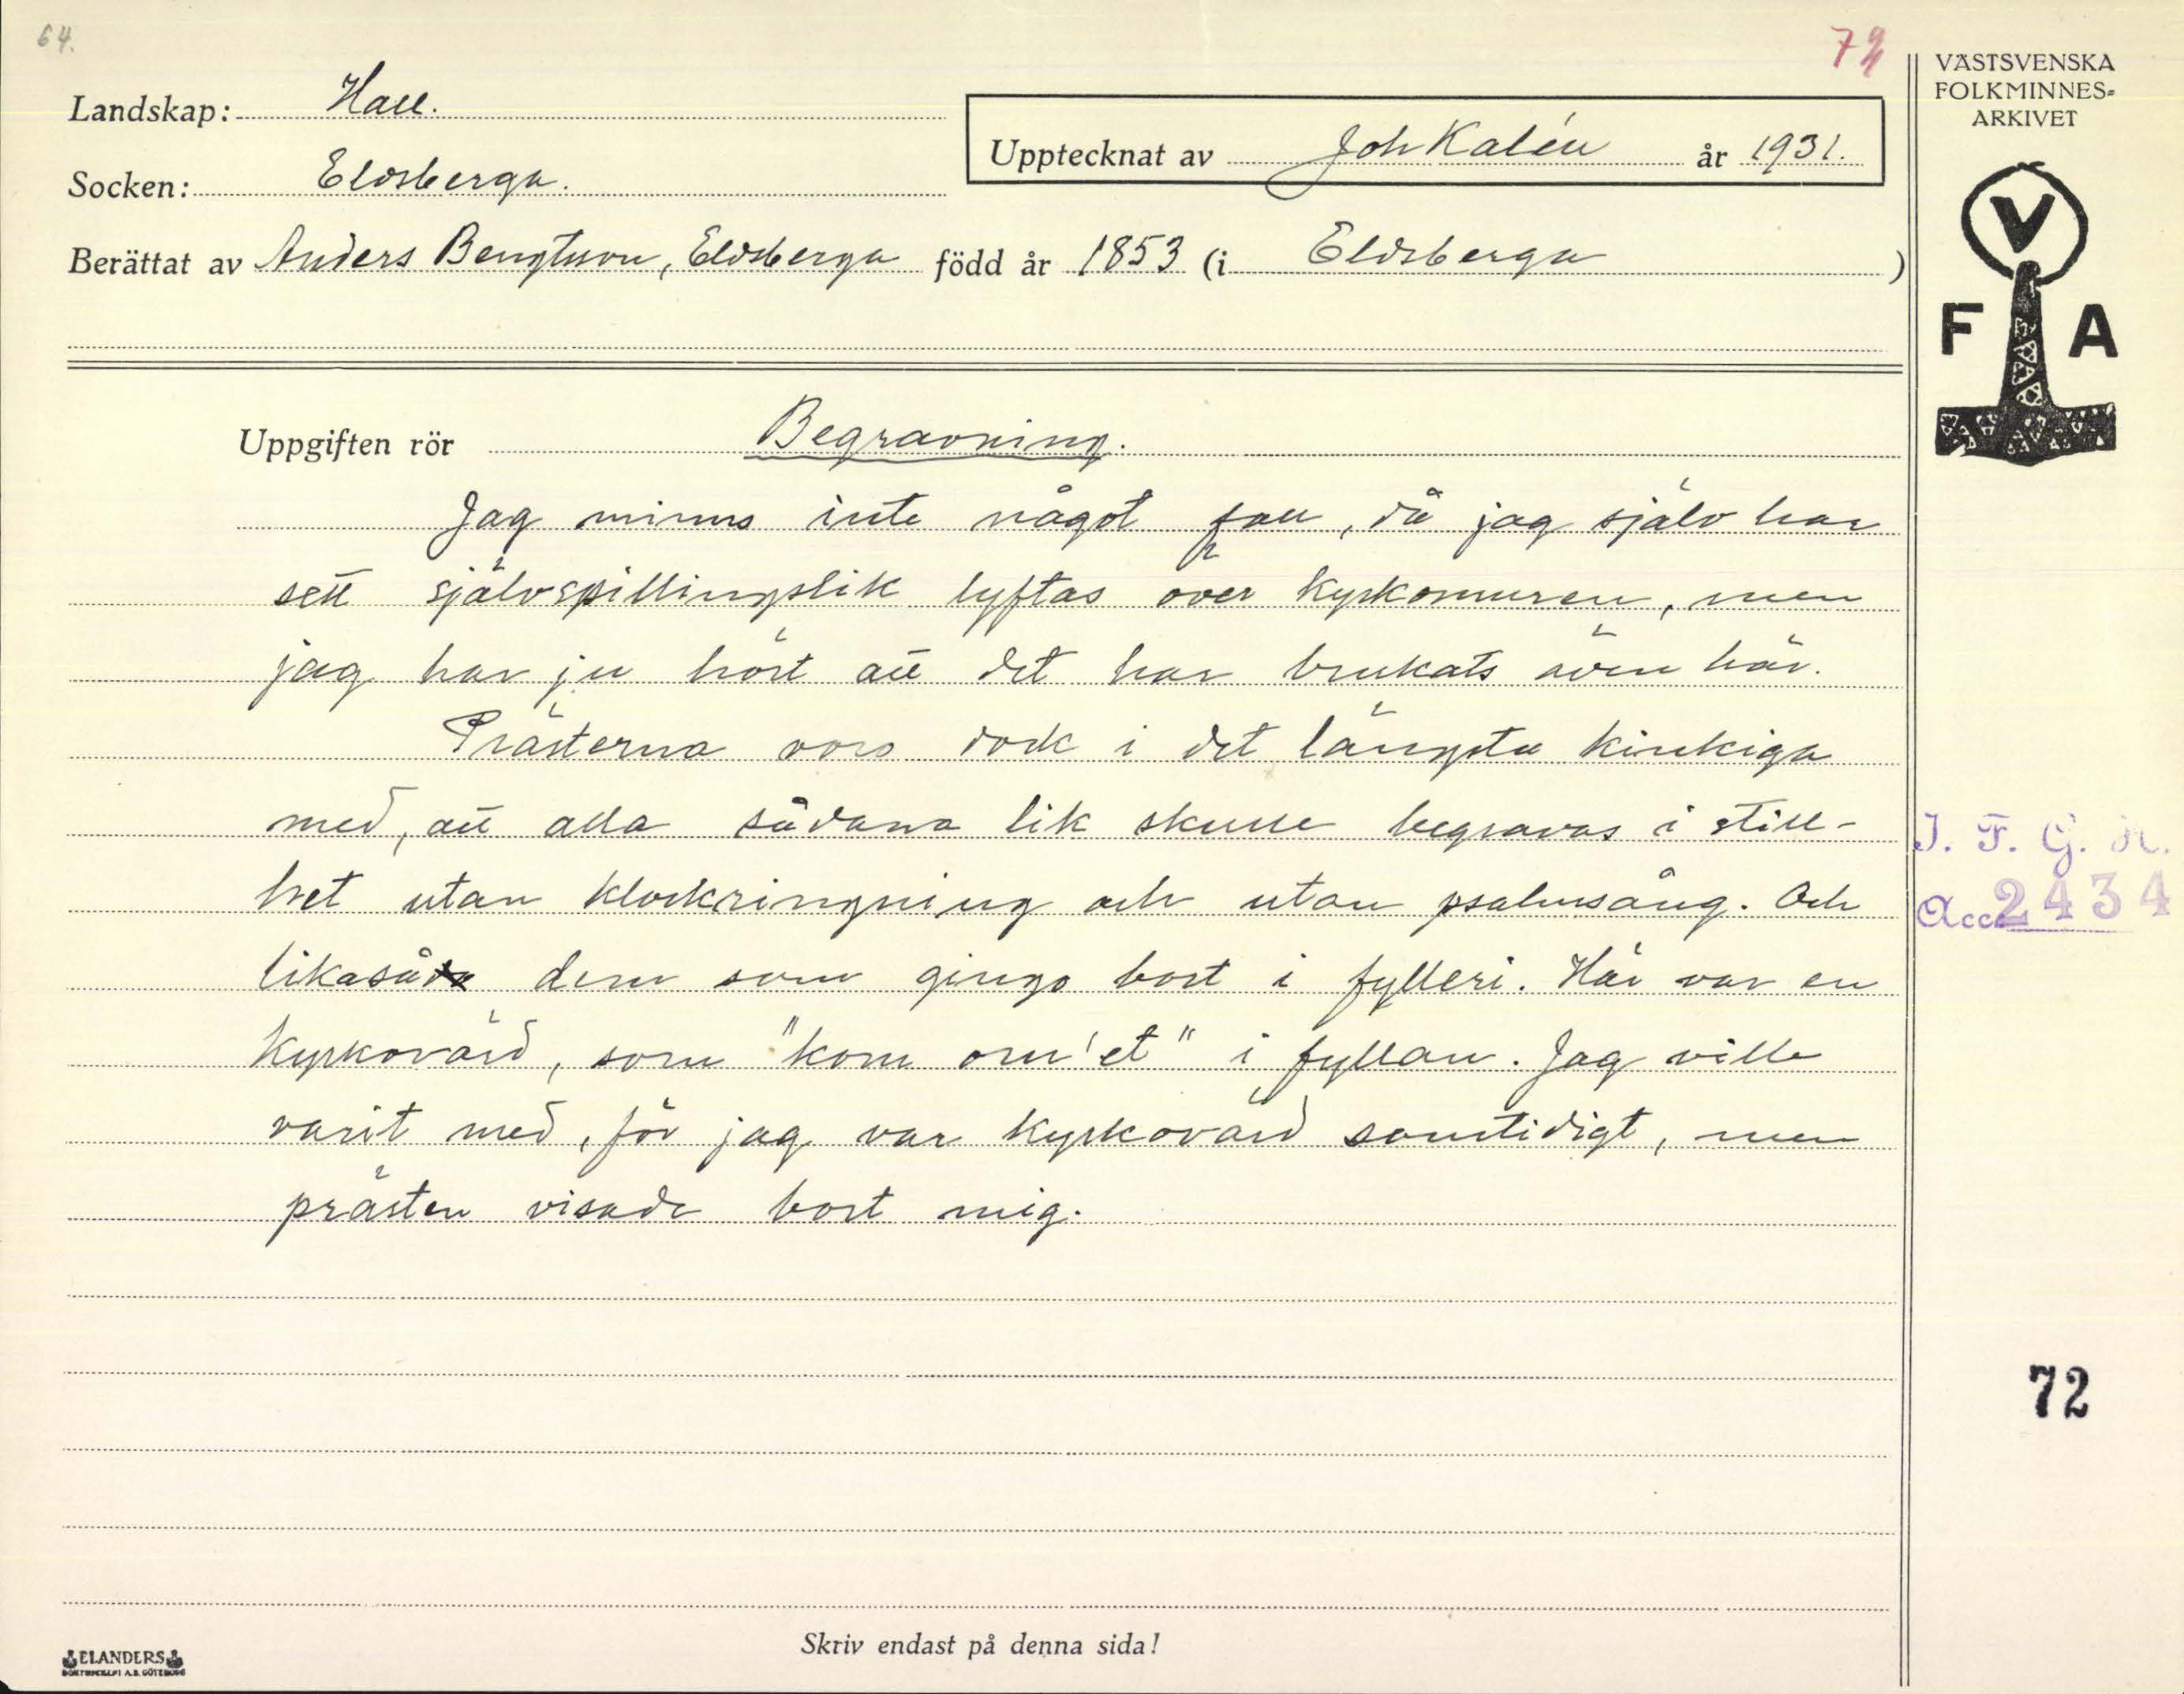 64.
72
VÄSTSVENSKA
FOLKMINNES-
ARKIVET
Landskap: Hall.
Upptecknat av Joh Kalén år 1931.
Socken: Eldsberga.
Berättat av Anders Bengtsson, Eldsberga född år 1853 (i Eldsberga )
V
F A
Uppgiften rör Begravning.
Jag minns inte något fall, då jag själv har
sett självspillingslik lyftas över kyrkomuren, men
jag har ju hört att det har brukats även här.
Prästerna voro dock i det längsta kinkiga
med, att alla sådana lik skulle begravas i still-
het utan klockringning och utan psalmsång. Och
likaså dem som gingo bort i fylleri. Här var en
kyrkovärd, som "kom om'et" i fyllan. Jag ville
varit med, för jag var kyrkovärd samtidigt, men
prästen visade bort mig.
I. F. G. H.
Acc. 2434
72
Skriv endast på denna sida!
ELANDERS
BOKTRYCKERI A.B. GÖTEBORG